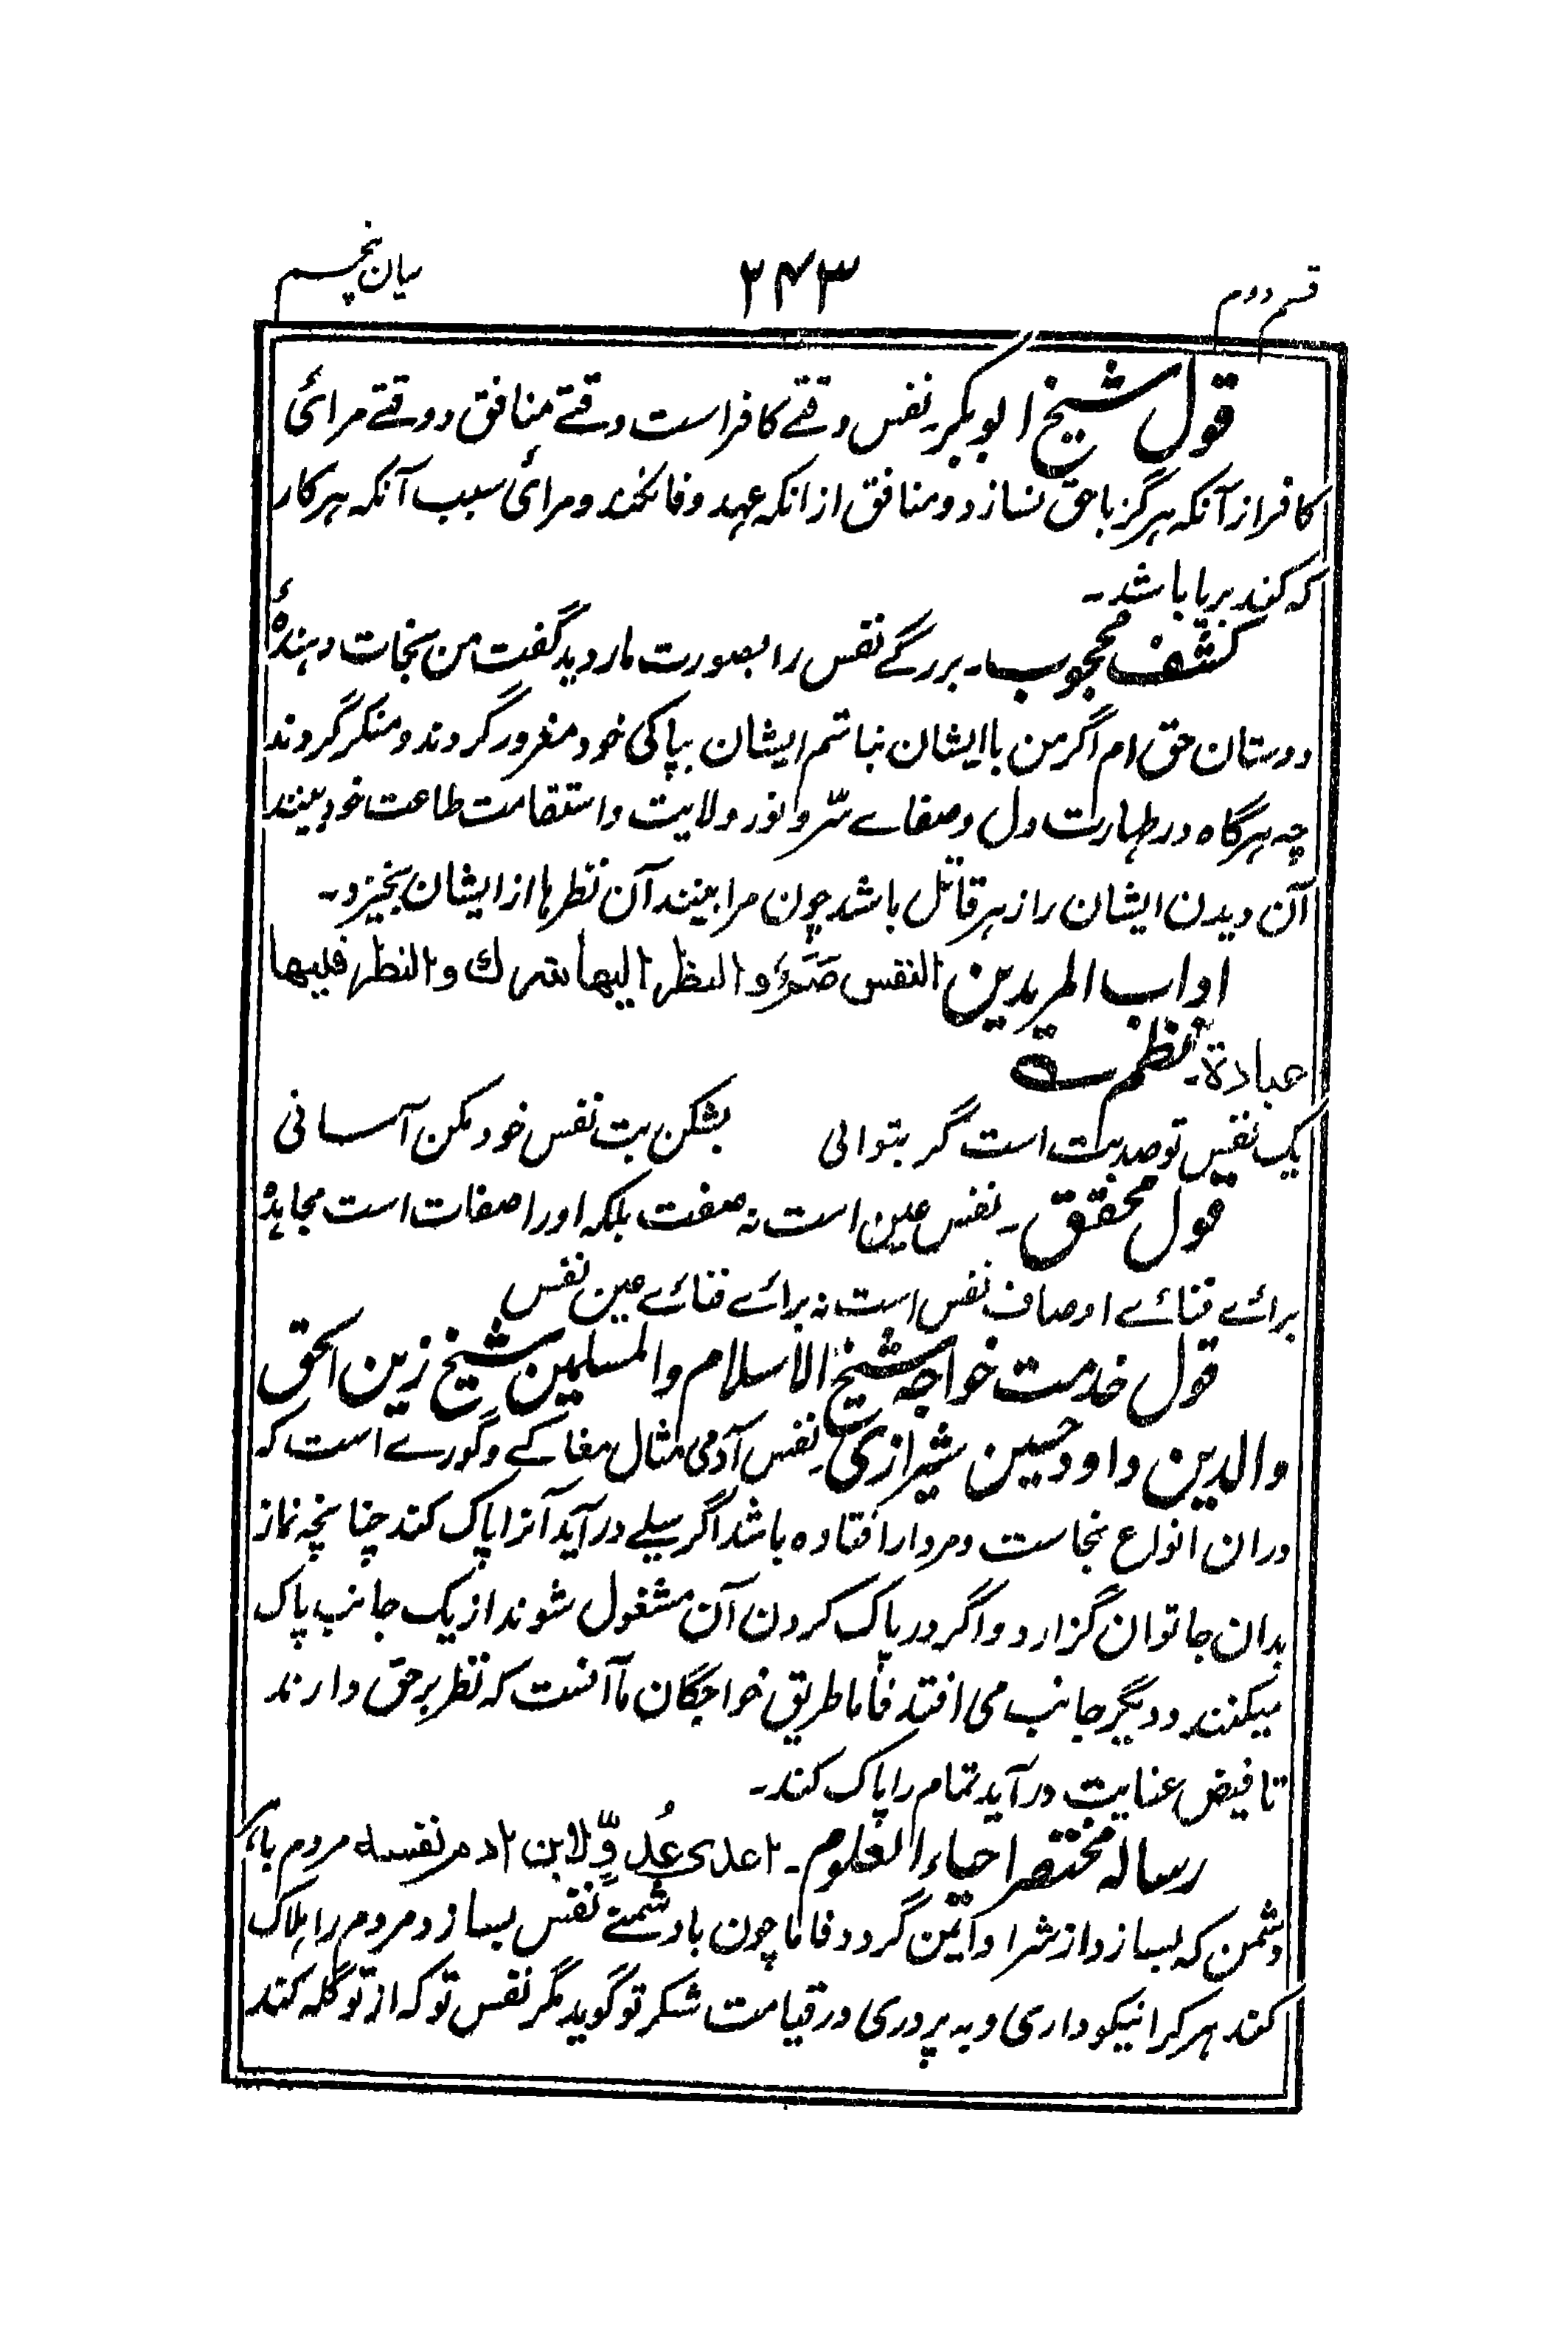 قسم دوم
۲۴۳
بیان پنجم
قول شیخ ابوبکر۔ نفس وقتے کافر است وقتے منافق و وقتے مرائی
کافر از آنکہ ہرگز باحق نسازد و منافق ازانکہ عہد وفا نکند و مرائی سبب آنکہ ہر کار
کہ کند بریا باشد۔
کشف محجوب۔ بزرگے نفس را بصورت مار دید گفت من نجات دہندۂ
دوستان حق ام اگر من با ایشان نباشم ایشان بپاکی خود مغرور گردند و منکر گردند
چہ ہرگاہ در طہارت دل و صفاے سرّ و نور ولایت و استقامت طاعت خود بینند
آن دیدن ایشان را زہر قاتل باشد چون مرا بینند آن نظرہا از ایشان بخیزد۔
اداب المریدین النفس صَنَمٌ و النظر الیها شرك و النظر فیها
عبادة۔ نظم ؎
یک نفس تو صد بت است گر بتوانی بشکن بت نفس خود مکن آسانی
قول محقق۔ نفس عین است نہ صفت بلکہ اورا صفات است مجاہدہٴ
برائے فنائے اوصاف نفس است نہ برائے فنائے عین نفس
قول خدمت خواجہ شیخ الاسلام والمسلمین شیخ زین الحق
والدین داود حسین شیرازی۔ نفس آدمی مثال مغاکے و گورے است کہ
دران انواع نجاست و مردار افتادہ باشد اگر سیلے در آید آنرا پاک کند چنانچہ نماز
بدان جا توان گزارد و اگر در پاک کردن آن مشغول شوند از یک جانب پاک
میکنند و دیگر جانب می افتد فاما طریق خواجگان ما آنست کہ نظر بر حق دارند
تا فیض عنایت در آید تمام را پاک کند۔
رسالہ مختصر احیاء العلوم۔ اعدی عُدوٍّ لابن ادم نفسه مردم با
دشمن کہ بسازد از شر او ایمن گردد فاما چون با دشمنے نفس بسازد مردم را ہلاک
کند ہر کرا نیکو داری و بہ پروری در قیامت شکر تو گوید مگر نفس تو کہ از تو گلہ کند